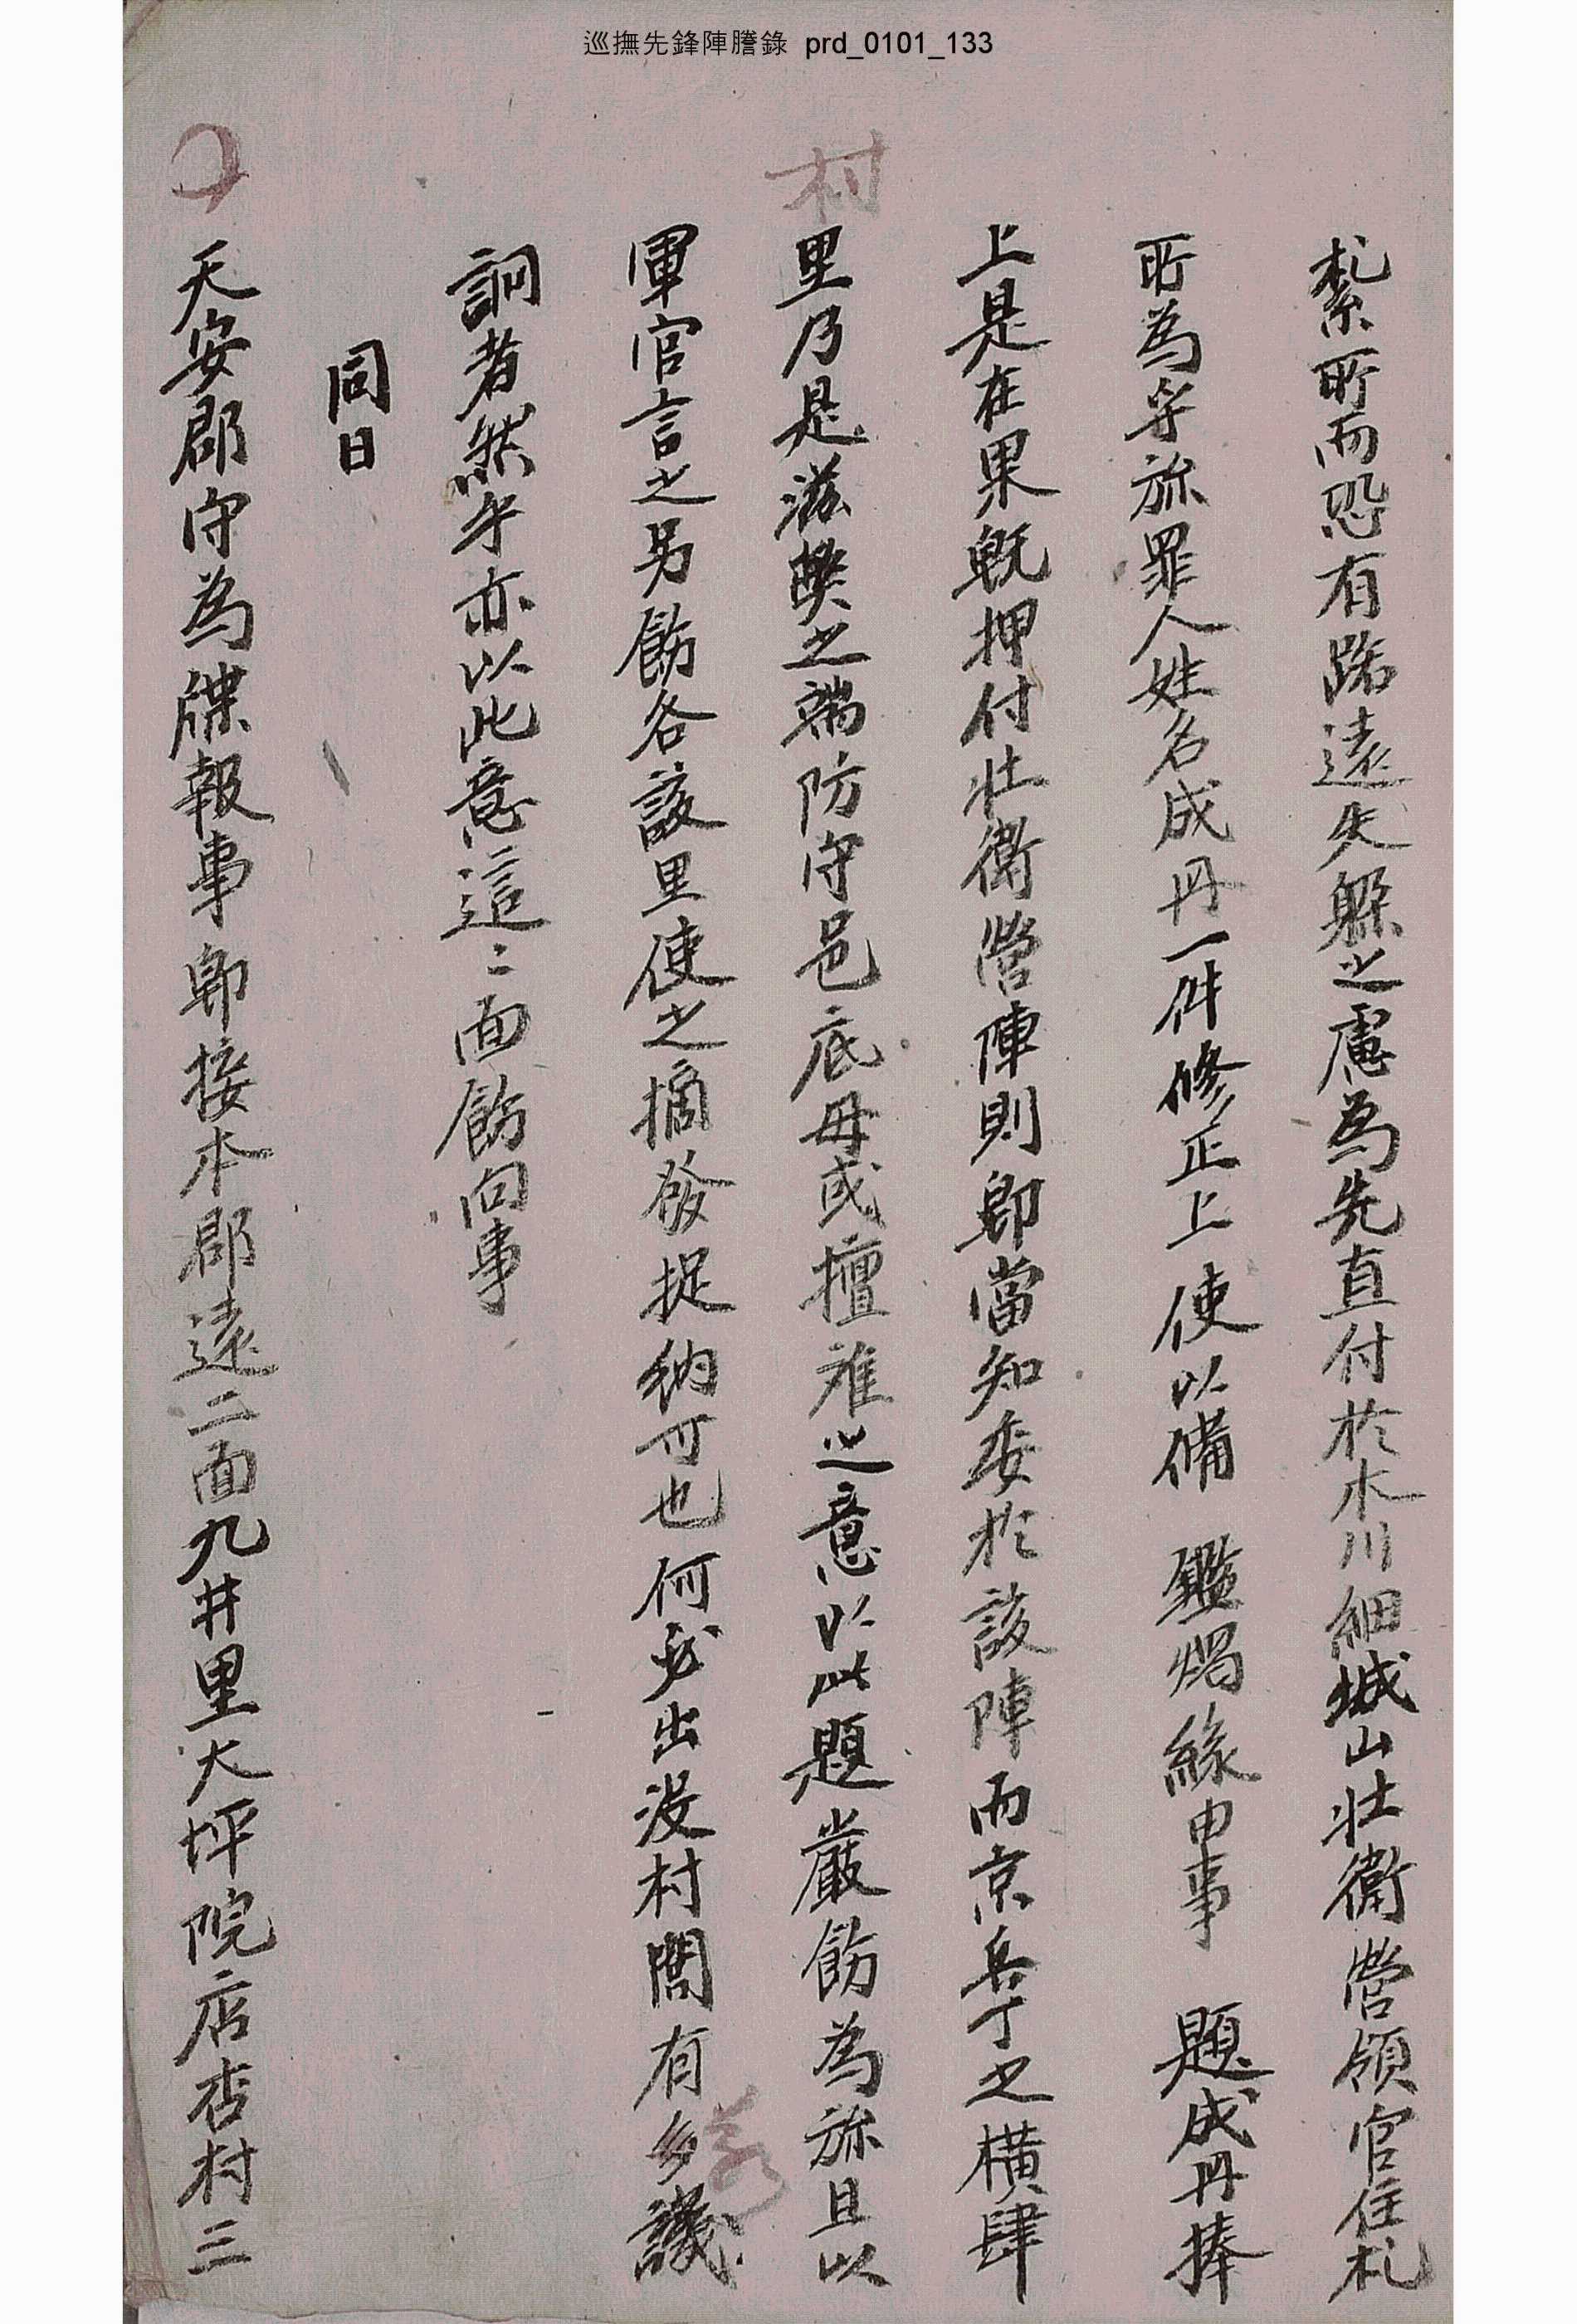 巡撫先鋒陣謄錄 prd_0101_133
紮所而恐有路遠失躲之慮為先直付於木川細城山壯衛營領官住札
所為乎旀罪人姓名成冊一件修正上使以備 鑑燭緣由事 題成冊捧
上是在果旣押付壯衛營陣則卽當知委於該陣而京兵丁之橫肆
村
里乃是滋獘之端防守邑底毋或擅離之意以此題嚴飭為旀且以
軍官言之另飭各該里使之摘發捉納可也何必出沒村閭有多譏
詗者然乎亦以此意這〻面飭向事
同日
天安郡守為牒報事卽接本郡遠二面九井里大坪院店杏村三